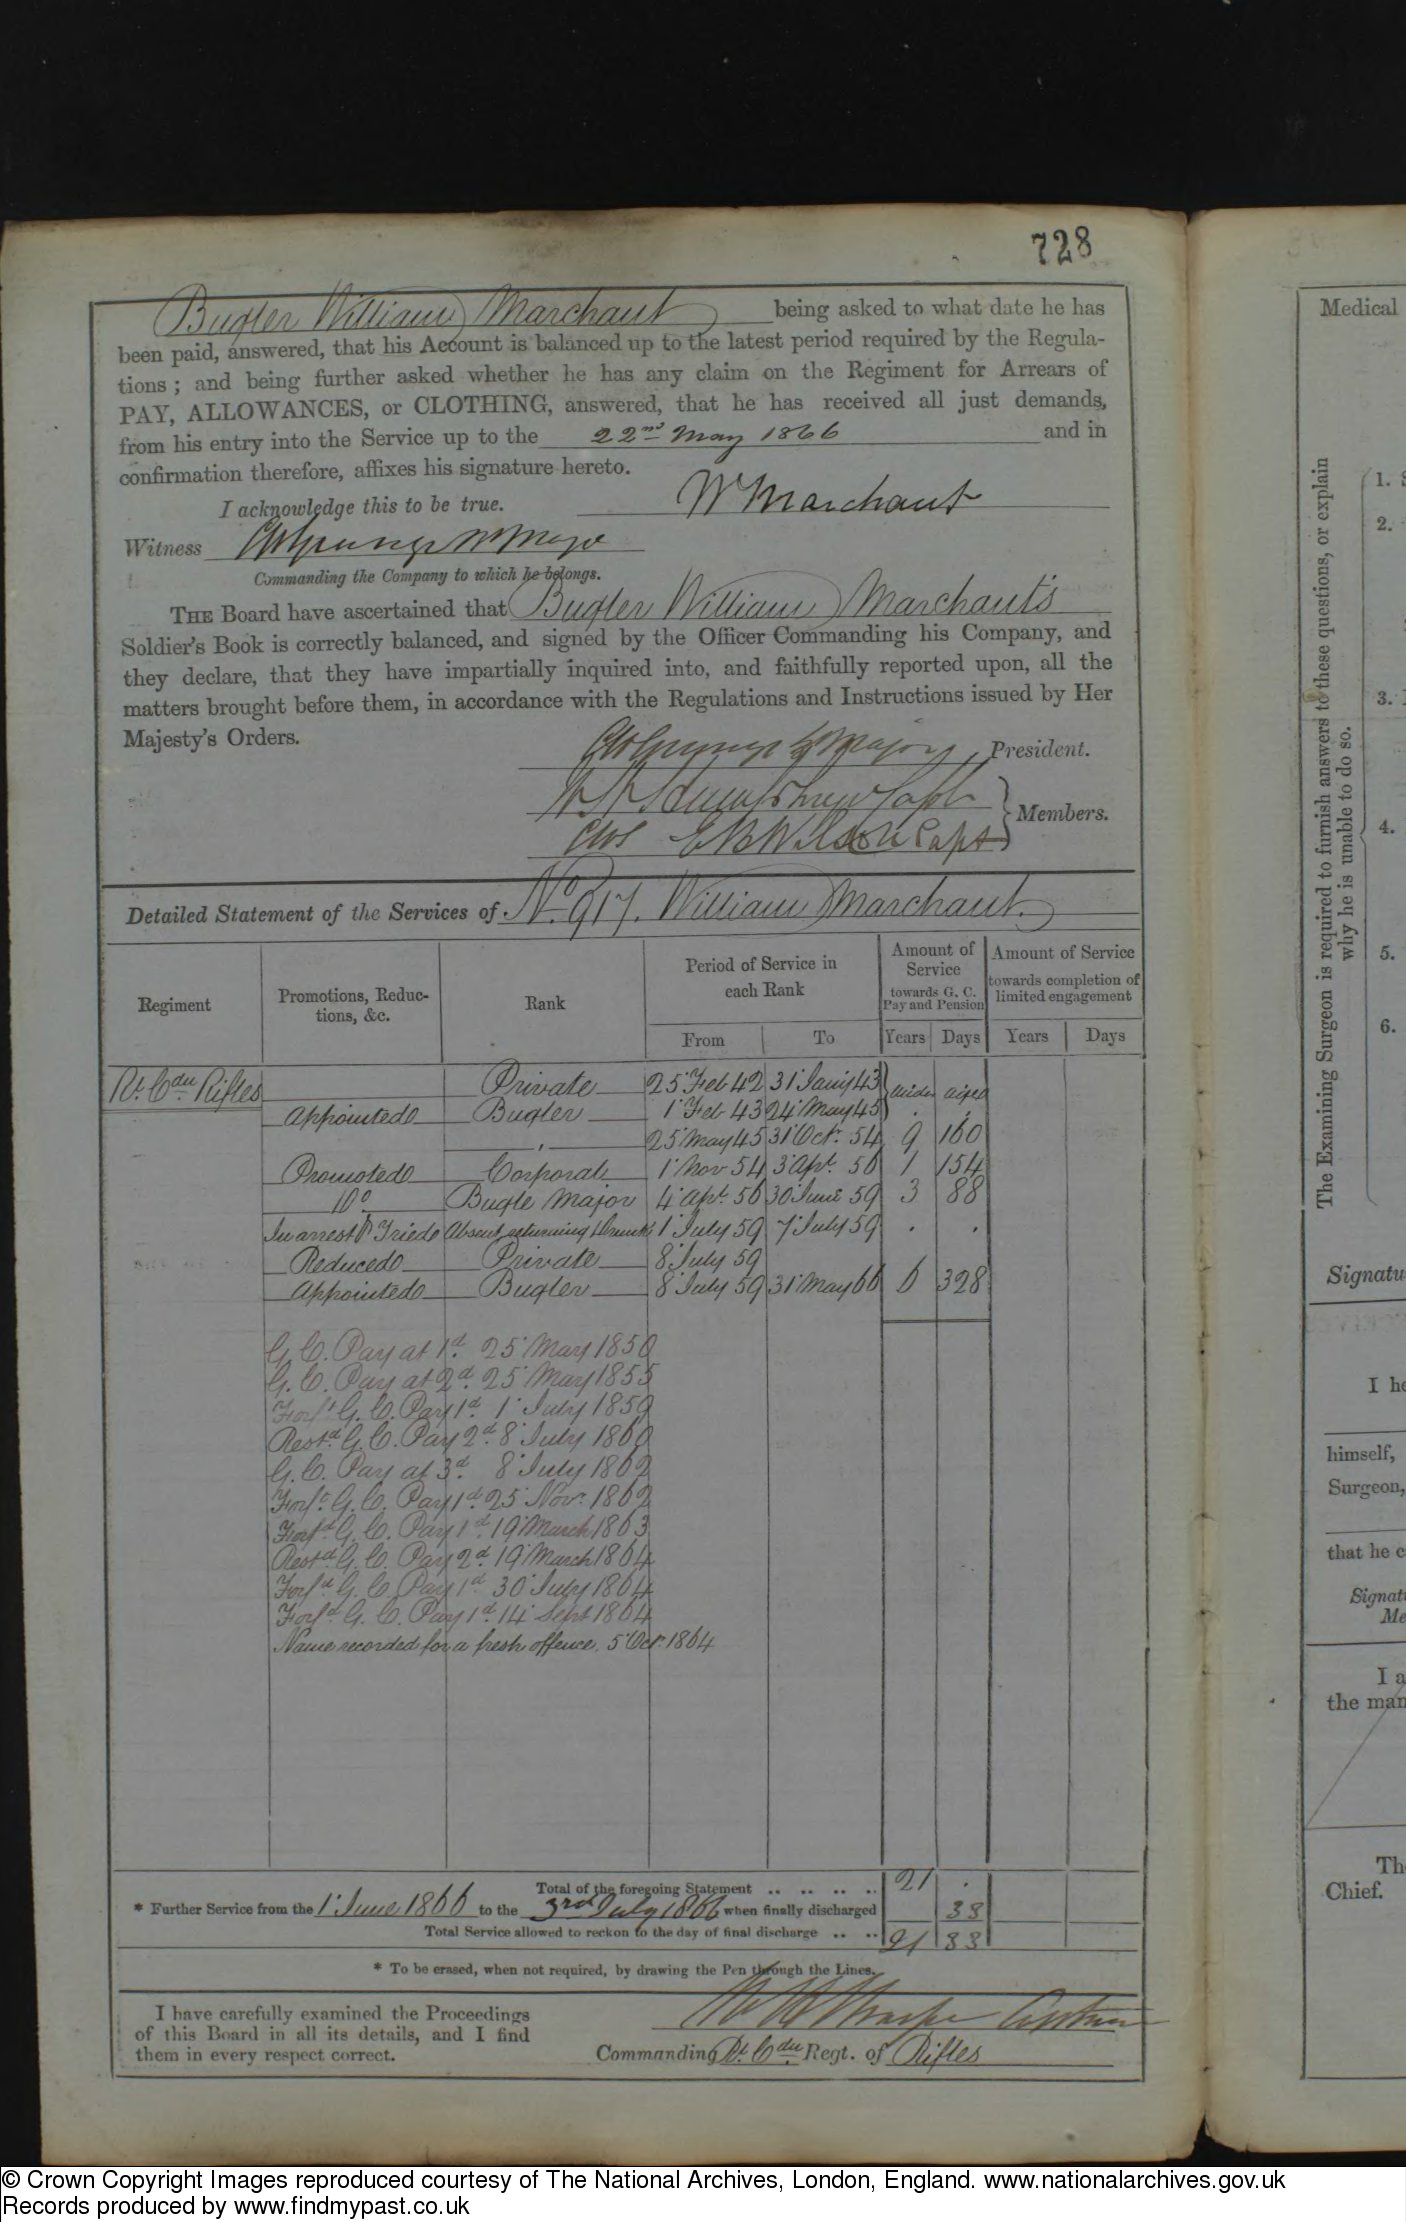 728
Bugler William Marchant being asked to what date he has
been paid, answered, that his Account is balanced up to the latest period required by the Regula-
tions ; and being further asked whether he has any claim on the Regiment for Arrears of
PAY, ALLOWANCES, or CLOTHING, answered, that he has received all just demands,
from his entry into the Service up to the 22nd May 1866 and in
confirmation therefore, affixes his signature hereto.
I acknowledge this to be true. Wm Marchant
Witness
Commanding the Company to which he belongs.
THE Board have ascertained that Bugler William Marchant's
Soldier's Book is correctly balanced, and signed by the Officer Commanding his Company, and
they declare, that they have impartially inquired into, and faithfully reported upon, all the
matters brought before them, in accordance with the Regulations and Instructions issued by Her
Majesty's Orders.
Major President.
Capt
Members.
E B Wilson Capt
Detailed Statement of the Services of No. 917. William Marchant.
Regiment Promotions, Reduc-tions, &c. Rank Period of Service in each Rank Amount of Service towards G. C. Pay and Pension Amount of Service towards completion of limited engagement
From To Years Days Years Days
Rl. Cdn. Rifles Private 25 Feb 42 31 Jany 43 under aged
Appointed Bugler 1 Feb 43 24 May 45 . .
" 25 May 45 31 Oct. 54 9 160
Promoted Corporal 1 Nov 54 3 Apl. 56 1 154
Do. Bugle Major 4 Apl. 56 30 June 59 3 88
In arrest & Tried Absent returning drunk 1 July 59 7 July 59 . .
Reduced Private 8 July 59
Appointed Bugler 8 July 59 31 May 66 6 328
G. C. Pay at 1d. 25 May 1850
G. C. Pay at 2d. 25 May 1855
Forft G. C. Pay 1d. 1 July 1859
Restd G. C. Pay 2d. 8 July 1860
G. C. Pay at 3d. 8 July 1862
Forft. G. C. Pay 1d. 25 Novr. 1862
Forfd G. C. Pay 1d. 19 March 1863
Restd G. C. Pay 2d. 19 March 1864
Forfd G. C. Pay 1d 30 July 1864
Forfd G. C. Pay 1d. 14 Sept 1864
Name recorded for a fresh offence. 5 Oct. 1864
Total of the foregoing Statement .. .. .. .. 21 .
* Further Service from the 1 June 1866 to the 3rd July 1866 when finally discharged 33
Total Service allowed to reckon to the day of final discharge .. .. 21 33
* To be erased, when not required, by drawing the Pen through the Lines.
I have carefully examined the Proceedings
of this Board in all its details, and I find
them in every respect correct.
Commanding Rl. Cdn. Regt. of Rifles
Medical
The Examining Surgeon is required to furnish answers to these questions, or explain
why he is unable to do so.
1. S
2.
3.
4.
5.
6.
Signatu
I he
himself,
Surgeon,
that he c
Signat
Me
I a
the man
Th
Chief.
© Crown Copyright Images reproduced courtesy of The National Archives, London, England. www.nationalarchives.gov.uk
Records produced by www.findmypast.co.uk